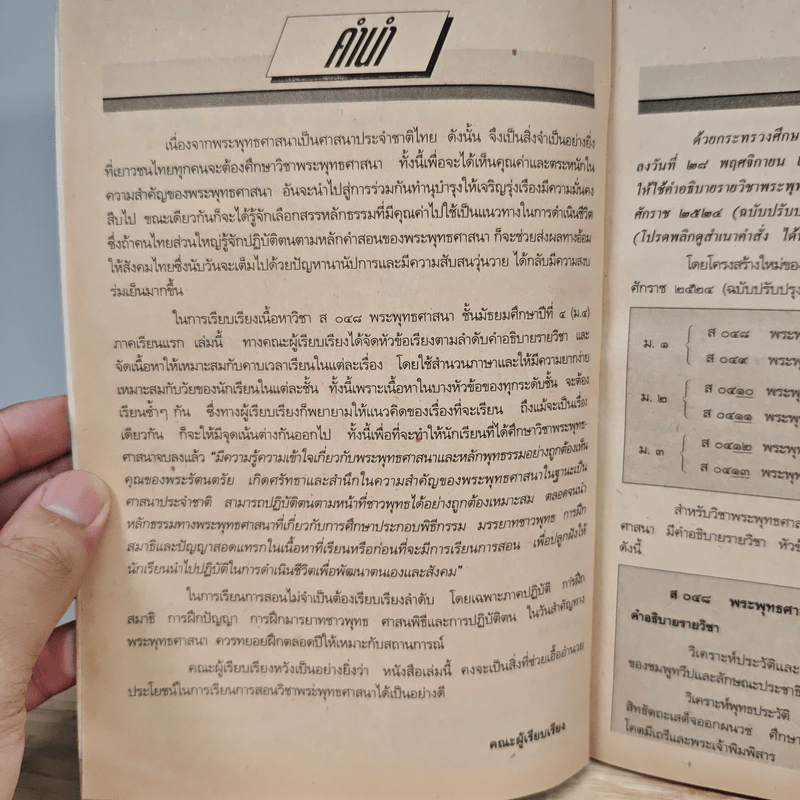 คำนำ
เนื่องจากพระพุทธศาสนาเป็นศาสนาประจำชาติไทย ดังนั้น จึงเป็นสิ่งจำเป็นอย่างยิ่ง
ที่เยาวชนไทยทุกคนจะต้องศึกษาวิชาพระพุทธศาสนา ทั้งนี้เพื่อจะได้เห็นคุณค่าและตระหนักใน
ความสำคัญของพระพุทธศาสนา อันจะนำไปสู่การร่วมกันทำนุบำรุงให้เจริญรุ่งเรืองมีความมั่นคง
สืบไป ขณะเดียวกันก็จะได้รู้จักเลือกสรรหลักธรรมที่มีคุณค่าไปใช้เป็นแนวทางในการดำเนินชีวิต
ซึ่งถ้าคนไทยส่วนใหญ่รู้จักปฏิบัติตนตามหลักคำสอนของพระพุทธศาสนา ก็จะช่วยส่งผลทางอ้อม
ให้สังคมไทยซึ่งนับวันจะเต็มไปด้วยปัญหานานัปการและมีความสับสนวุ่นวาย ได้กลับมีความสงบ
ร่มเย็นมากขึ้น
ในการเรียบเรียงเนื้อหาวิชา ส ๐๔๘ พระพุทธศาสนา ชั้นมัธยมศึกษาปีที่ ๔ (ม.๔)
ภาคเรียนแรก เล่มนี้ ทางคณะผู้เรียบเรียงได้จัดหัวข้อเรียงตามลำดับคำอธิบายรายวิชา และ
จัดเนื้อหาให้เหมาะสมกับคาบเวลาเรียนในแต่ละเรื่อง โดยใช้สำนวนภาษาและให้มีความยากง่าย
เหมาะสมกับวัยของนักเรียนในแต่ละชั้น ทั้งนี้เพราะเนื้อหาในบางหัวข้อของทุกระดับชั้น จะต้อง
เรียนซ้ำๆ กัน ซึ่งทางผู้เรียบเรียงก็พยายามให้แนวคิดของเรื่องที่จะเรียน ถึงแม้จะเป็นเรื่อง
เดียวกัน ก็จะให้มีจุดเน้นต่างกันออกไป ทั้งนี้เพื่อที่จะทำให้นักเรียนที่ได้ศึกษาวิชาพระพุทธ-
ศาสนาจบลงแล้ว "มีความรู้ความเข้าใจเกี่ยวกับพระพุทธศาสนาและหลักพุทธธรรมอย่างถูกต้องเห็น
คุณของพระรัตนตรัย เกิดศรัทธาและสำนึกในความสำคัญของพระพุทธศาสนาในฐานะเป็น
ศาสนาประจำชาติ สามารถปฏิบัติตนตามหน้าที่ชาวพุทธได้อย่างถูกต้องเหมาะสม ตลอดจนนำ
หลักธรรมทางพระพุทธศาสนาที่เกี่ยวกับการศึกษาประกอบพิธีกรรม มรรยาทชาวพุทธ การฝึก
สมาธิและปัญญาสอดแทรกในเนื้อหาที่เรียนหรือก่อนที่จะมีการเรียนการสอน เพื่อปลูกฝังให้
นักเรียนนำไปปฏิบัติในการดำเนินชีวิตเพื่อพัฒนาตนเองและสังคม"
ในการเรียนการสอนไม่จำเป็นต้องเรียบเรียงลำดับ โดยเฉพาะภาคปฏิบัติ การฝึก
สมาธิ การฝึกปัญญา การฝึกมารยาทชาวพุทธ ศาสนพิธีและการปฏิบัติตน ในวันสำคัญทาง
พระพุทธศาสนา ควรทยอยฝึกตลอดปีให้เหมาะกับสถานการณ์
คณะผู้เรียบเรียงหวังเป็นอย่างยิ่งว่า หนังสือเล่มนี้ คงจะเป็นสิ่งที่ช่วยเอื้ออำนวย
ประโยชน์ในการเรียนการสอนวิชาพระพุทธศาสนาได้เป็นอย่างดี
คณะผู้เรียบเรียง
ด้วยกระทรวงศึกษา
ลงวันที่ ๒๘ พฤศจิกายน
ให้ใช้คำอธิบายรายวิชาพระพุ
ศักราช ๒๕๒๔ (ฉบับปรับป
(โปรดพลิกดูสำเนาคำสั่ง ได้
โดยโครงสร้างใหม่ของ
ศักราช ๒๕๒๔ (ฉบับปรับปรุง
ม. ๑
ส ๐๔๘ พระพ
ส ๐๔๙ พระพ
ม. ๒
ส ๐๔๑๐ พระ
ส ๐๔๑๑ พระพุ
ม. ๓
ส ๐๔๑๒ พระ
ส ๐๔๑๓ พระพุ
สำหรับวิชาพระพุทธศาส
ศาสนา มีคำอธิบายรายวิชา หัวข้
ดังนี้
ส ๐๔๘ พระพุทธศา
คำอธิบายรายวิชา
วิเคราะห์ประวัติและ
ของชมพูทวีปและลักษณะประชาธิ
วิเคราะห์พุทธประวัติ
สิทธัตถะเสด็จออกผนวช ศึกษา
โคตมีเถรีและพระเจ้าพิมพิสาร